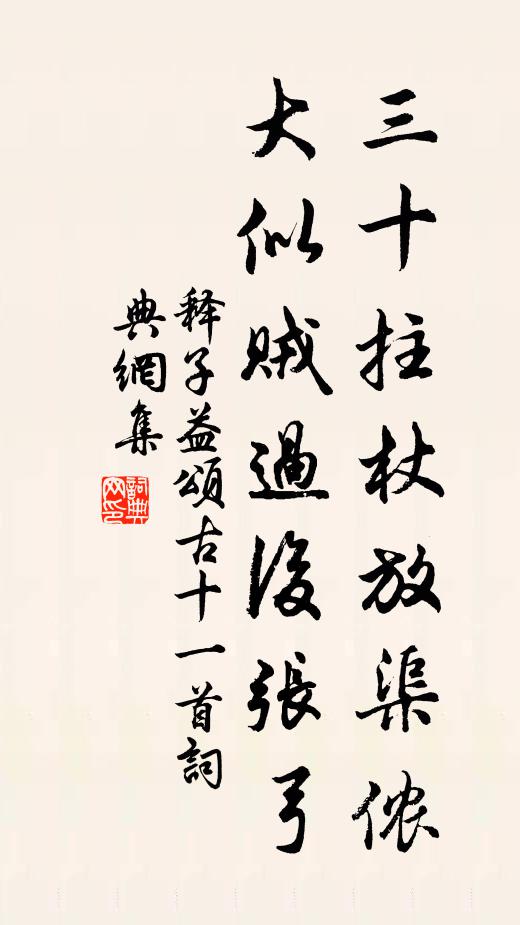 三十拄杖放渠侬
大似贼過後張弓
释子益頌古十一首詞
典網集
詞典网印